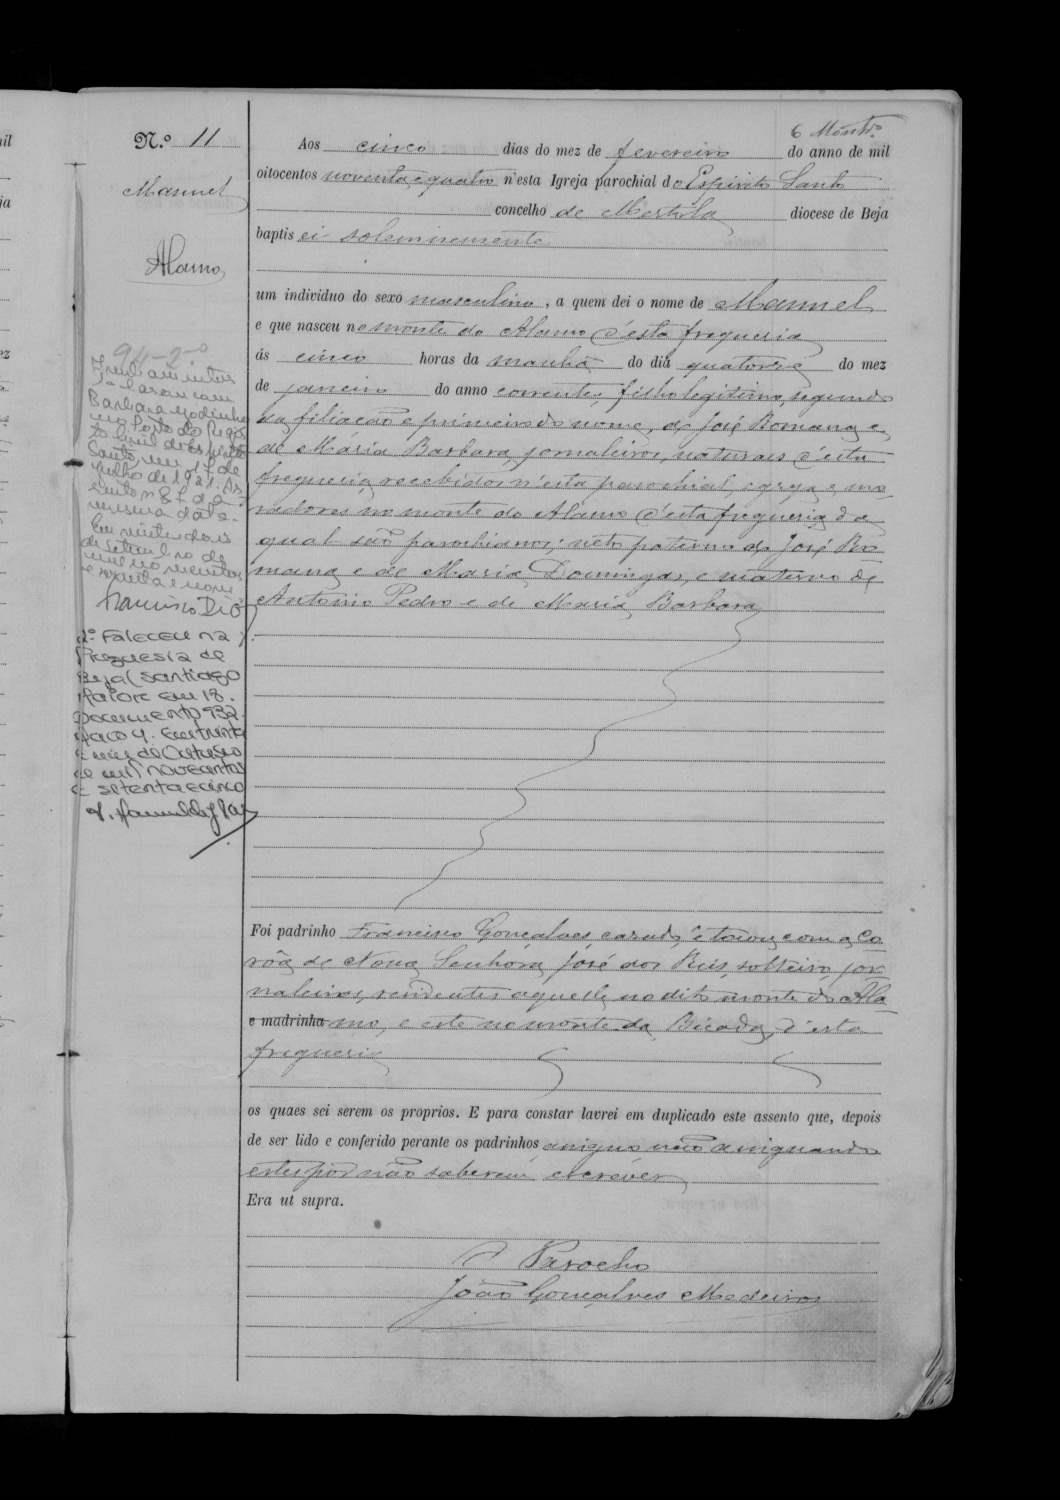 N.º 11
Manuel
Alamo
6 Montr.º
Aos cinco dias do mez de fevereiro do anno de mil
oitocentos noventa e quatro n'esta Igreja parochial do Espirito Santo
concelho de Mertola diocese de Beja
baptisei solemnemente
um individuo do sexo masculino, a quem dei o nome de Manuel
e que nasceu no monte do Alamo d'esta freguesia
ás cinco horas da manhã do dia quatorze do mez
de janeiro do anno corrente, filho legitimo, segundo
na filiação e primeiro do nome, de José Romana e
de Maria Barbara, jornaleiros, naturaes d'esta
freguesia, recebidos n'esta parochial egreja e mo-
radores no monte do Alamo d'esta freguesia da
qual são parochianos; neto paterno de José Ro-
mana e de Maria Domingas, e materno de
Antonio Pedro e de Maria Barbara
Foi padrinho Francisco Gonçalves, casado, e tocou com a Co-
rôa de Nossa Senhora José dos Reis, solteiro, jor-
naleiros, residentes aquelle no dito monte do Ala-
e madrinha mo, e este no monte da Bicada, d'esta
freguesia
os quaes sei serem os proprios. E para constar lavrei em duplicado este assento que, depois
de ser lido e conferido perante os padrinhos assigno não assignando
estes por não saberem escrever
Era ut supra.
O Parocho
João Gonçalves Medeiros
94-2-º
1º Casou com
Barbara Godinho
no Posto do Regis-
to Civil do Espirito
Santo, em 17 de
Julho de 1921. As-
sento nº 8 f. da
mesma data.
Em vinte dois
de setembro de
mil novecentos
e
Francisco Dio
2º Faleceu na
Freguesia de
Beja (Santiago
Maior em 18.
Documento 932
Maço 4. Em trinta
e um de Outubro
de mil novecentos
e setenta e cinco